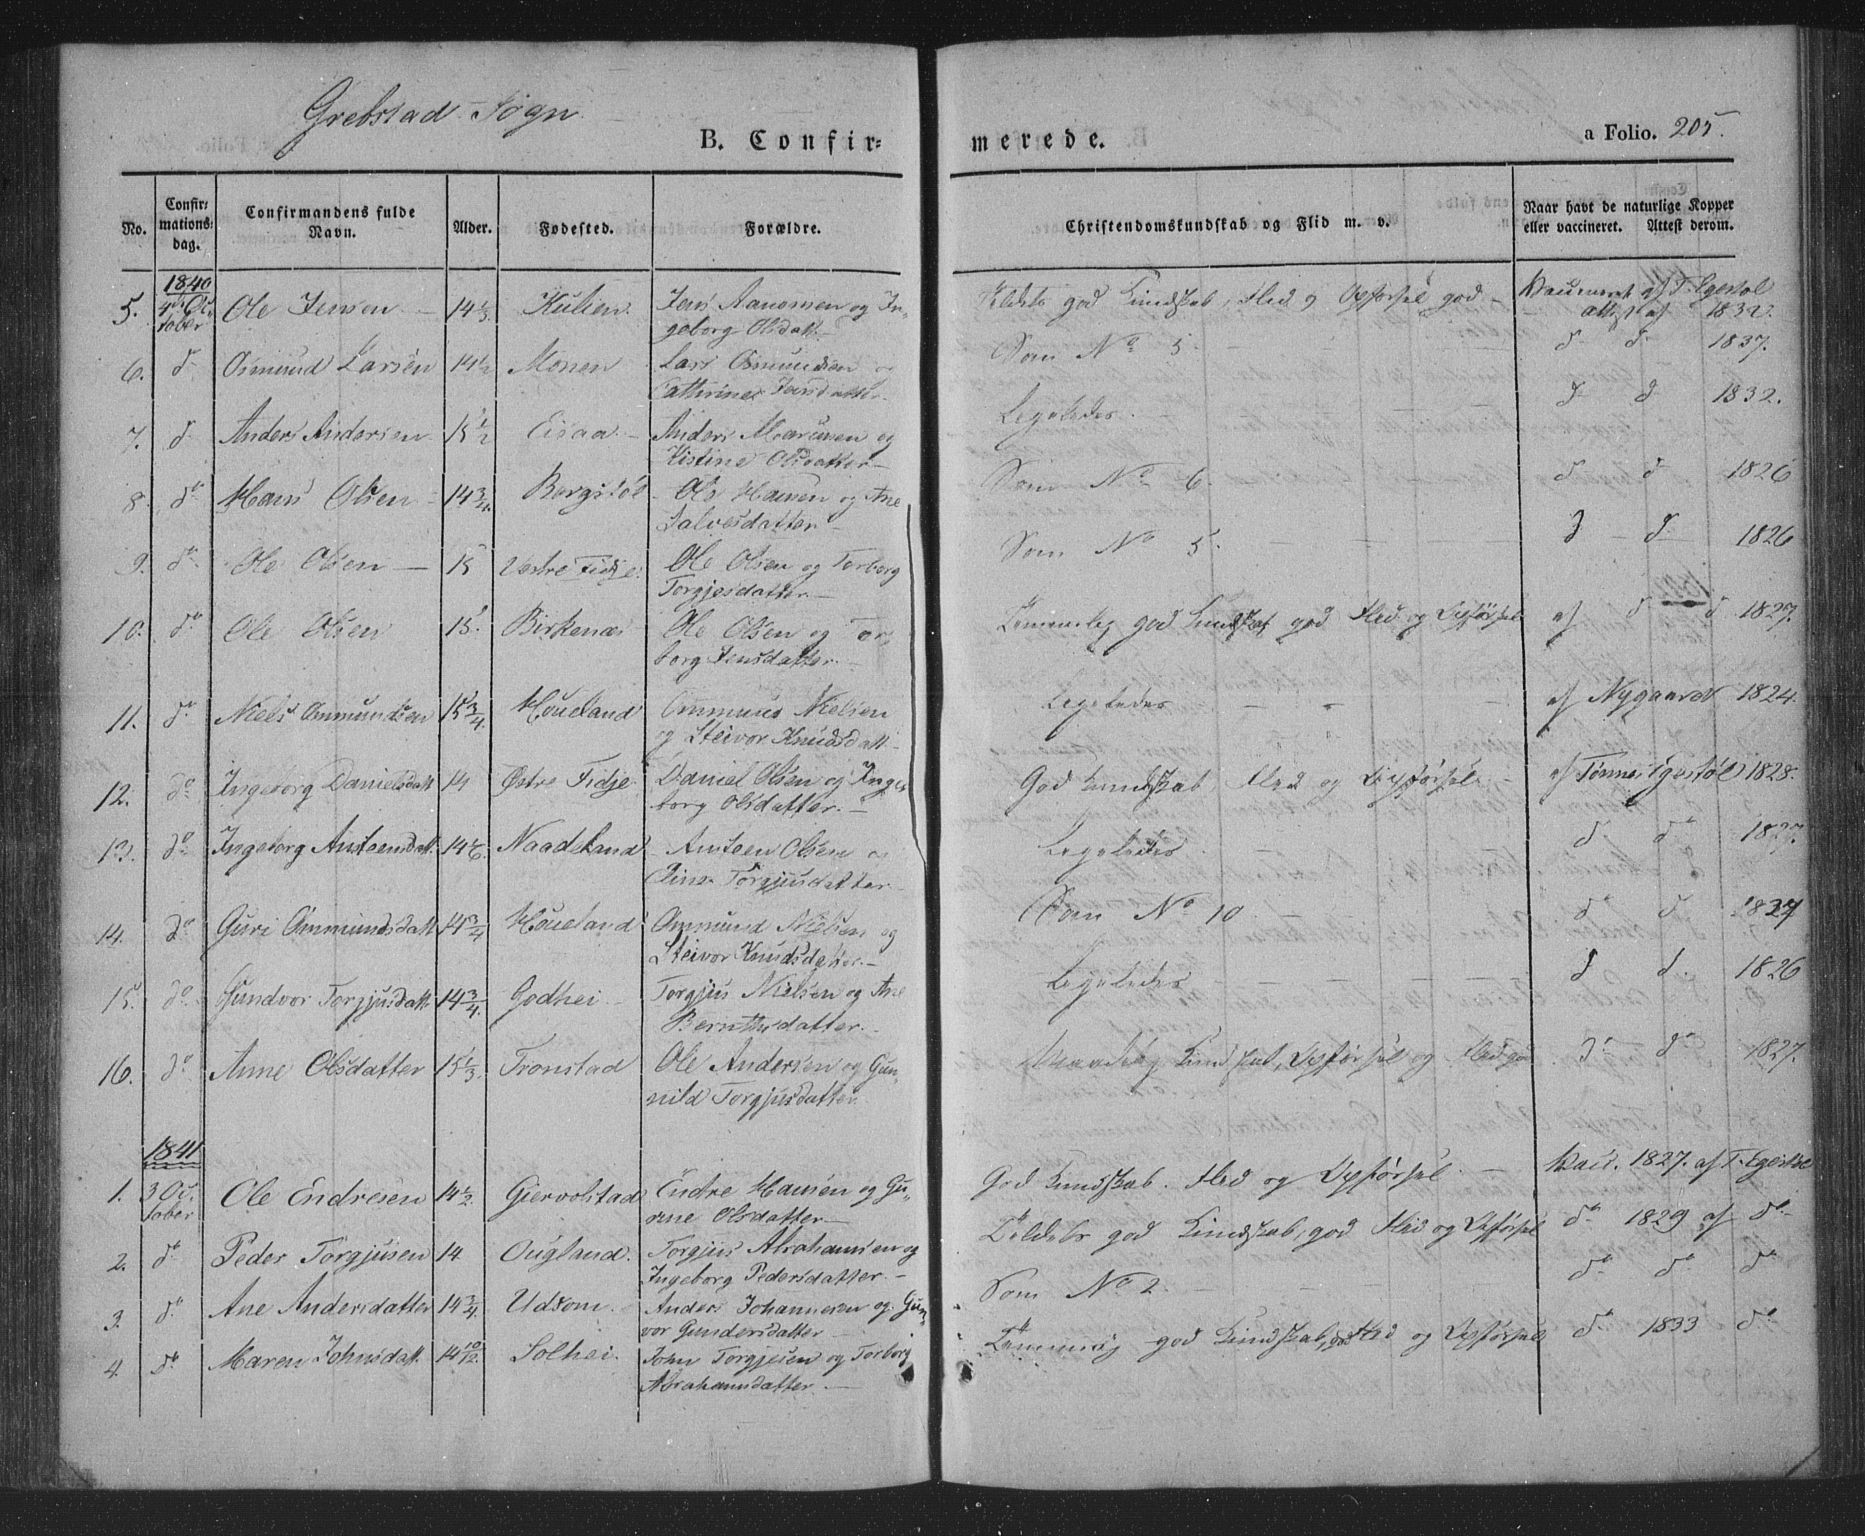 Grebstad Sogn
B. Confirmerede.
a Folio. 205.
No. Confirmationsdag. Confirmandens fulde Navn. Alder. Fødested. Forældre. Christendomskundskab og Flid m. v. Naar havt de naturlige Kopper eller vaccineret. Attest derom.
1840
5. 4de October Ole Jensen 14 1/3 Kulien Jens Aanonsen og Ingeborg Olsdatt. god Kundskab, Flid og Opførsel god af T. Egestøl attest af 1832.
6. do Osmund Larsen 14 1/2 Monen Lars Osmundsen og Cathrine Jensdatter Som No 5. d d 1837.
7. d Anders Andersen 15 1/2 Eisaa Anders og Kistine Olsdatter Ligeledes d d 1832.
8. do Hans Olsen 14 3/4 Borgstøl Ole Hansen og Ane Salvesdatter Som No 6. d d 1826
9. do Ole Olsen 15 Vestre Fidje Ole Olsen og Torborg Torgjesdatter Som No 5. d d 1826
10. do Ole Olsen 15 Birkenæs Ole Olsen og Torborg Jensdatter. Temmelig god Kundskab god Flid og Opførsel af d d 1827.
11. do Niels Ommundsen 15 3/4 Høueland Ommund Nielsen og Steivor Knudsdatt Ligeledes af Nygaard 1824.
12. do Ingeborg Danielsdatt 14 Østre Fidje Daniel Olsen og Ingeborg Olsdatter. God Kundskab, Flid og Opførsel af Tønnes Egestøl 1828.
13. do Ingeborg Austeensdatt. 14 1/6 Naadeland Austeen Olsen og Torgjusdatter Ligeledes d do 1827.
14. do Guri Ommundsdatt 14 3/4 Høueland Ommund Nielsen og Steivor Knudsdatter. Som No 10 do d 1827
15. do Gundvor Torgjusdatt 14 3/4 Godhei Torgjus Nielsen og Ane Bernthsdatter. Ligeledes d d. 1826
16. do Anne Olsdatter 15 1/3 Tronstad Ole Andersen og Gunnild Torgjusdatter Kundskab, Opførsel og Flid god. do do 1827.
1841
1. 3 October Ole Endresen 14 1/2 Giervolstad Endre Hansen og Olsdatter God Kundskab. Flid og Opførsel. Vacc. 1827. af T. Egestøl
2. do Peder Torgjusen 14 Ougland. Torgjus Abrahamsen og Ingeborg Pedersdatter. god Kundskab, god Flid og Opførsel do 1829 af do
3. do Ane Andersdatter 14 3/4 Udsom. Anders Johannesen og Gunvor Gundersdatter Som No 2. do do do
4. do Maren Johnsdatt. 14 10/12 Solhei. John Torgjesen og Torborg Abrahamsdatter. Temmelig god Kundskab, god Flid og Opførsel do 1833 do